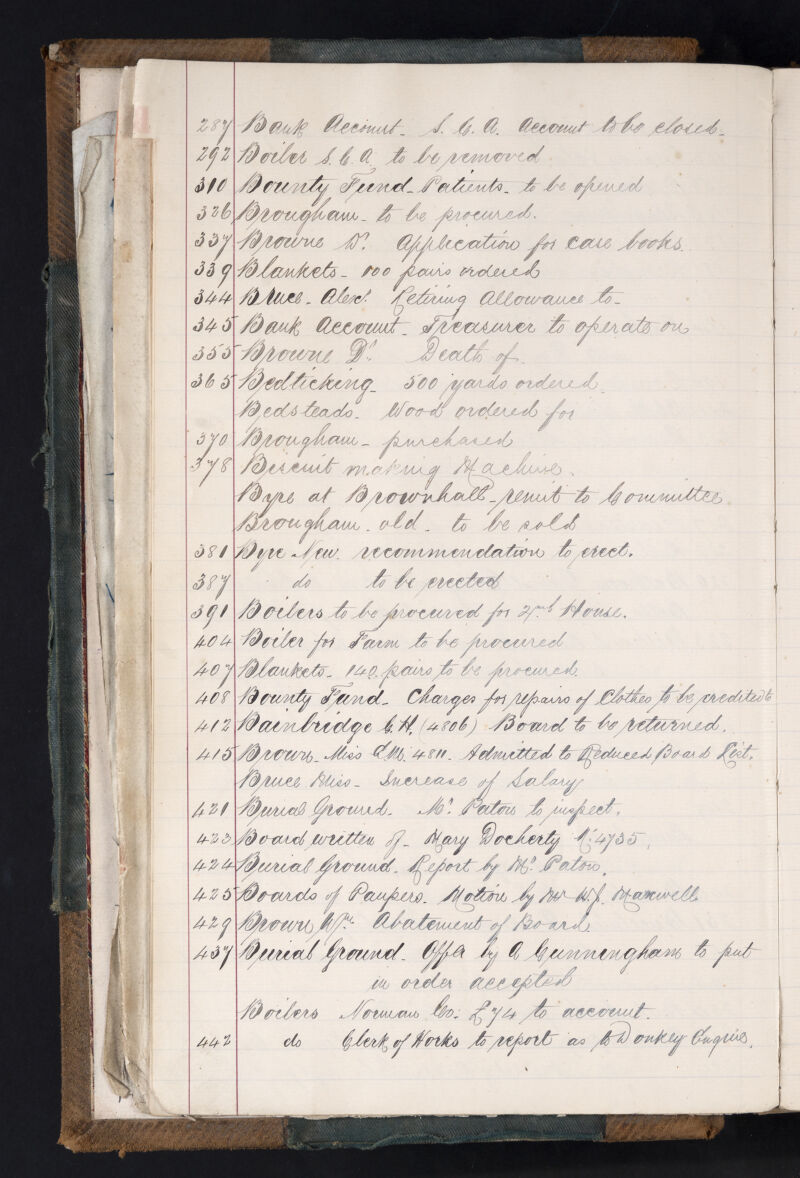 287 Bank Account - S. C. A. Account to be closed -
292 Boiler S. C. A. to be removed
310 Bounty Fund - Patients - to be opened
326 Brougham - to be procured.
337 Browne Dr. Application for case books.
339 Blankets - 100 pairs ordered
344 Bruce - Alexr. Retiring Allowance to -
345 Bank Account - Treasurer to operate on
355 Browne Dr. Death of.
365 Bedticking - 500 yards ordered.
Bedsteads - Wood ordered for
370 Brougham - purchased
378 Biscuit making Machine.
Byre at Brownhall - remit to Committee.
Brougham - old - to be sold
381 Byre New. recommendation to erect.
387 do to be erected
391 Boilers to be procured for 2nd House.
404 Boiler for Farm to be procured
407 Blankets - 140 pairs to be procured.
408 Bounty Fund - Charges for repairs of Clothes to be credited to
412 Bainbridge C. H. (4806) Board to be returned.
415 Brown - Miss 4811. Admitted to Reduced Board List.
Bruce Miss - Increase of Salary
421 Burial Ground. Mr. Paton to inspect.
423 Board written off - Mary Docherty No. 4735.
424 Burial Ground. Report by Mr. Paton.
425 Boards of Paupers. Motion by Mr W. J. Maxwell
429 Brown Wm. Abatement of Board
437 Burial Ground - Offer by A Cunningham to put
in order accepted
Boilers Norman Co: £74 to account.
442 do Clerk of Works to report as to Donkey Engine.